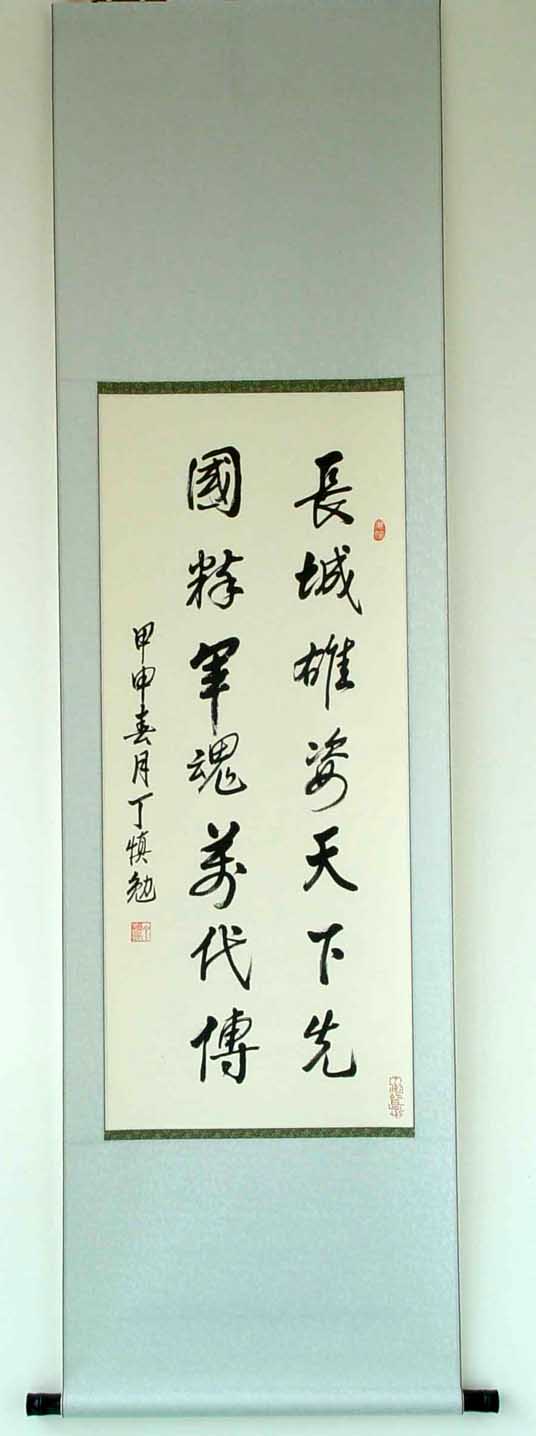 長城雄姿天下先
國粹軍魂萬代傳
甲申春月丁慎勉